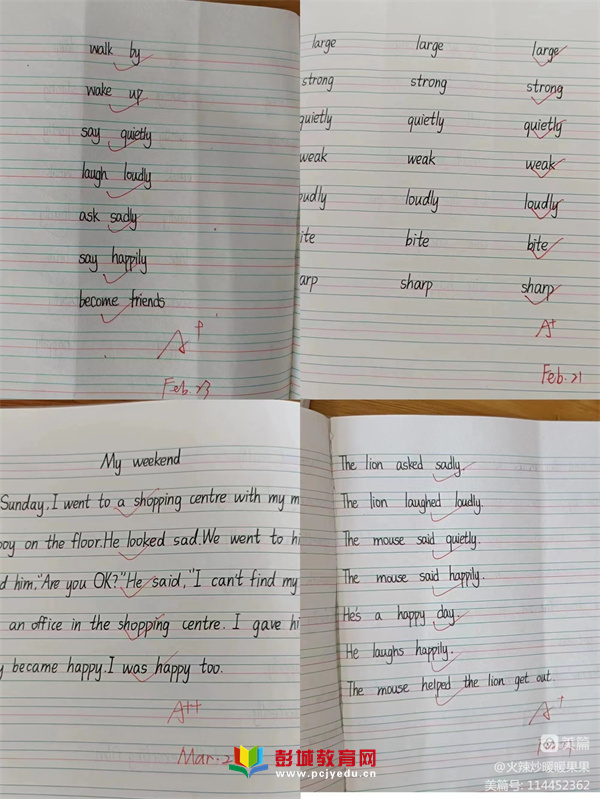 walk by
wake up
say quietly
laugh loudly
ask sadly
say happily
become friends
A+
Feb. 23
large large large
strong strong strong
quietly quietly quietly
weak weak weak
oudly loudly loudly
ite bite bite
arp sharp sharp
A+
Feb. 21
My weekend
Sunday. I went to a shopping centre with my m
oy on the floor. He looked sad. We went to hi
d him, "Are you OK?" He said, "I can't find my
an office in the shopping centre. I gave hi
y became happy. I was happy too.
A++
Mar. 2
The lion asked sadly.
The lion laughed loudly.
The mouse said quietly.
The mouse said happily.
He's a happy day.
He laughs happily.
The mouse helped the lion get out.
A+
彭城教育网
www.pcjyedu.cn
美篇
@火辣炒暖暖果果
美篇号: 114452362